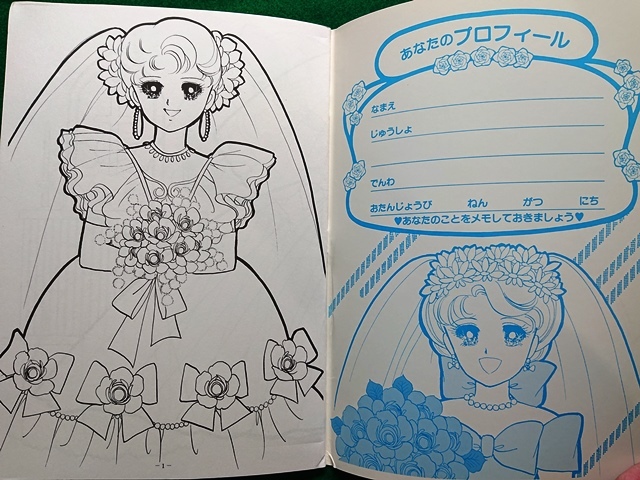 あなたのプロフィール
なまえ
じゅうしょ
でんわ
おたんじょうび ねん がつ にち
♥あなたのことをメモしておきましょう♥
-1-